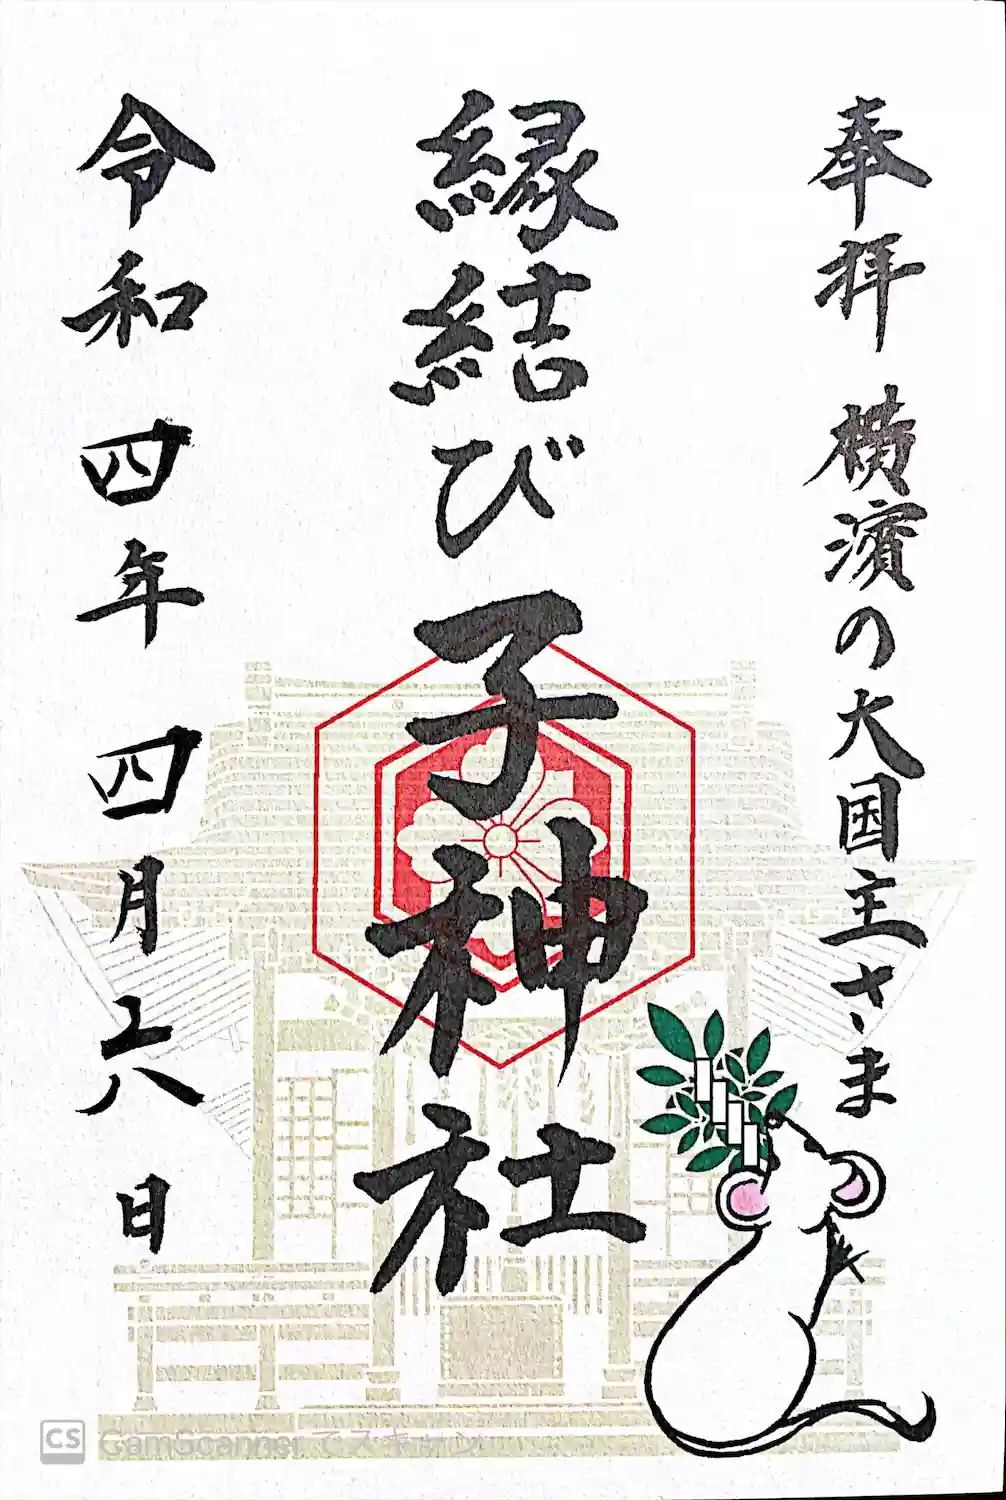 奉拝 横濱の大国主さま
縁結び 子神社
令和四年 四月二十八日
CS CamScanner でスキャン